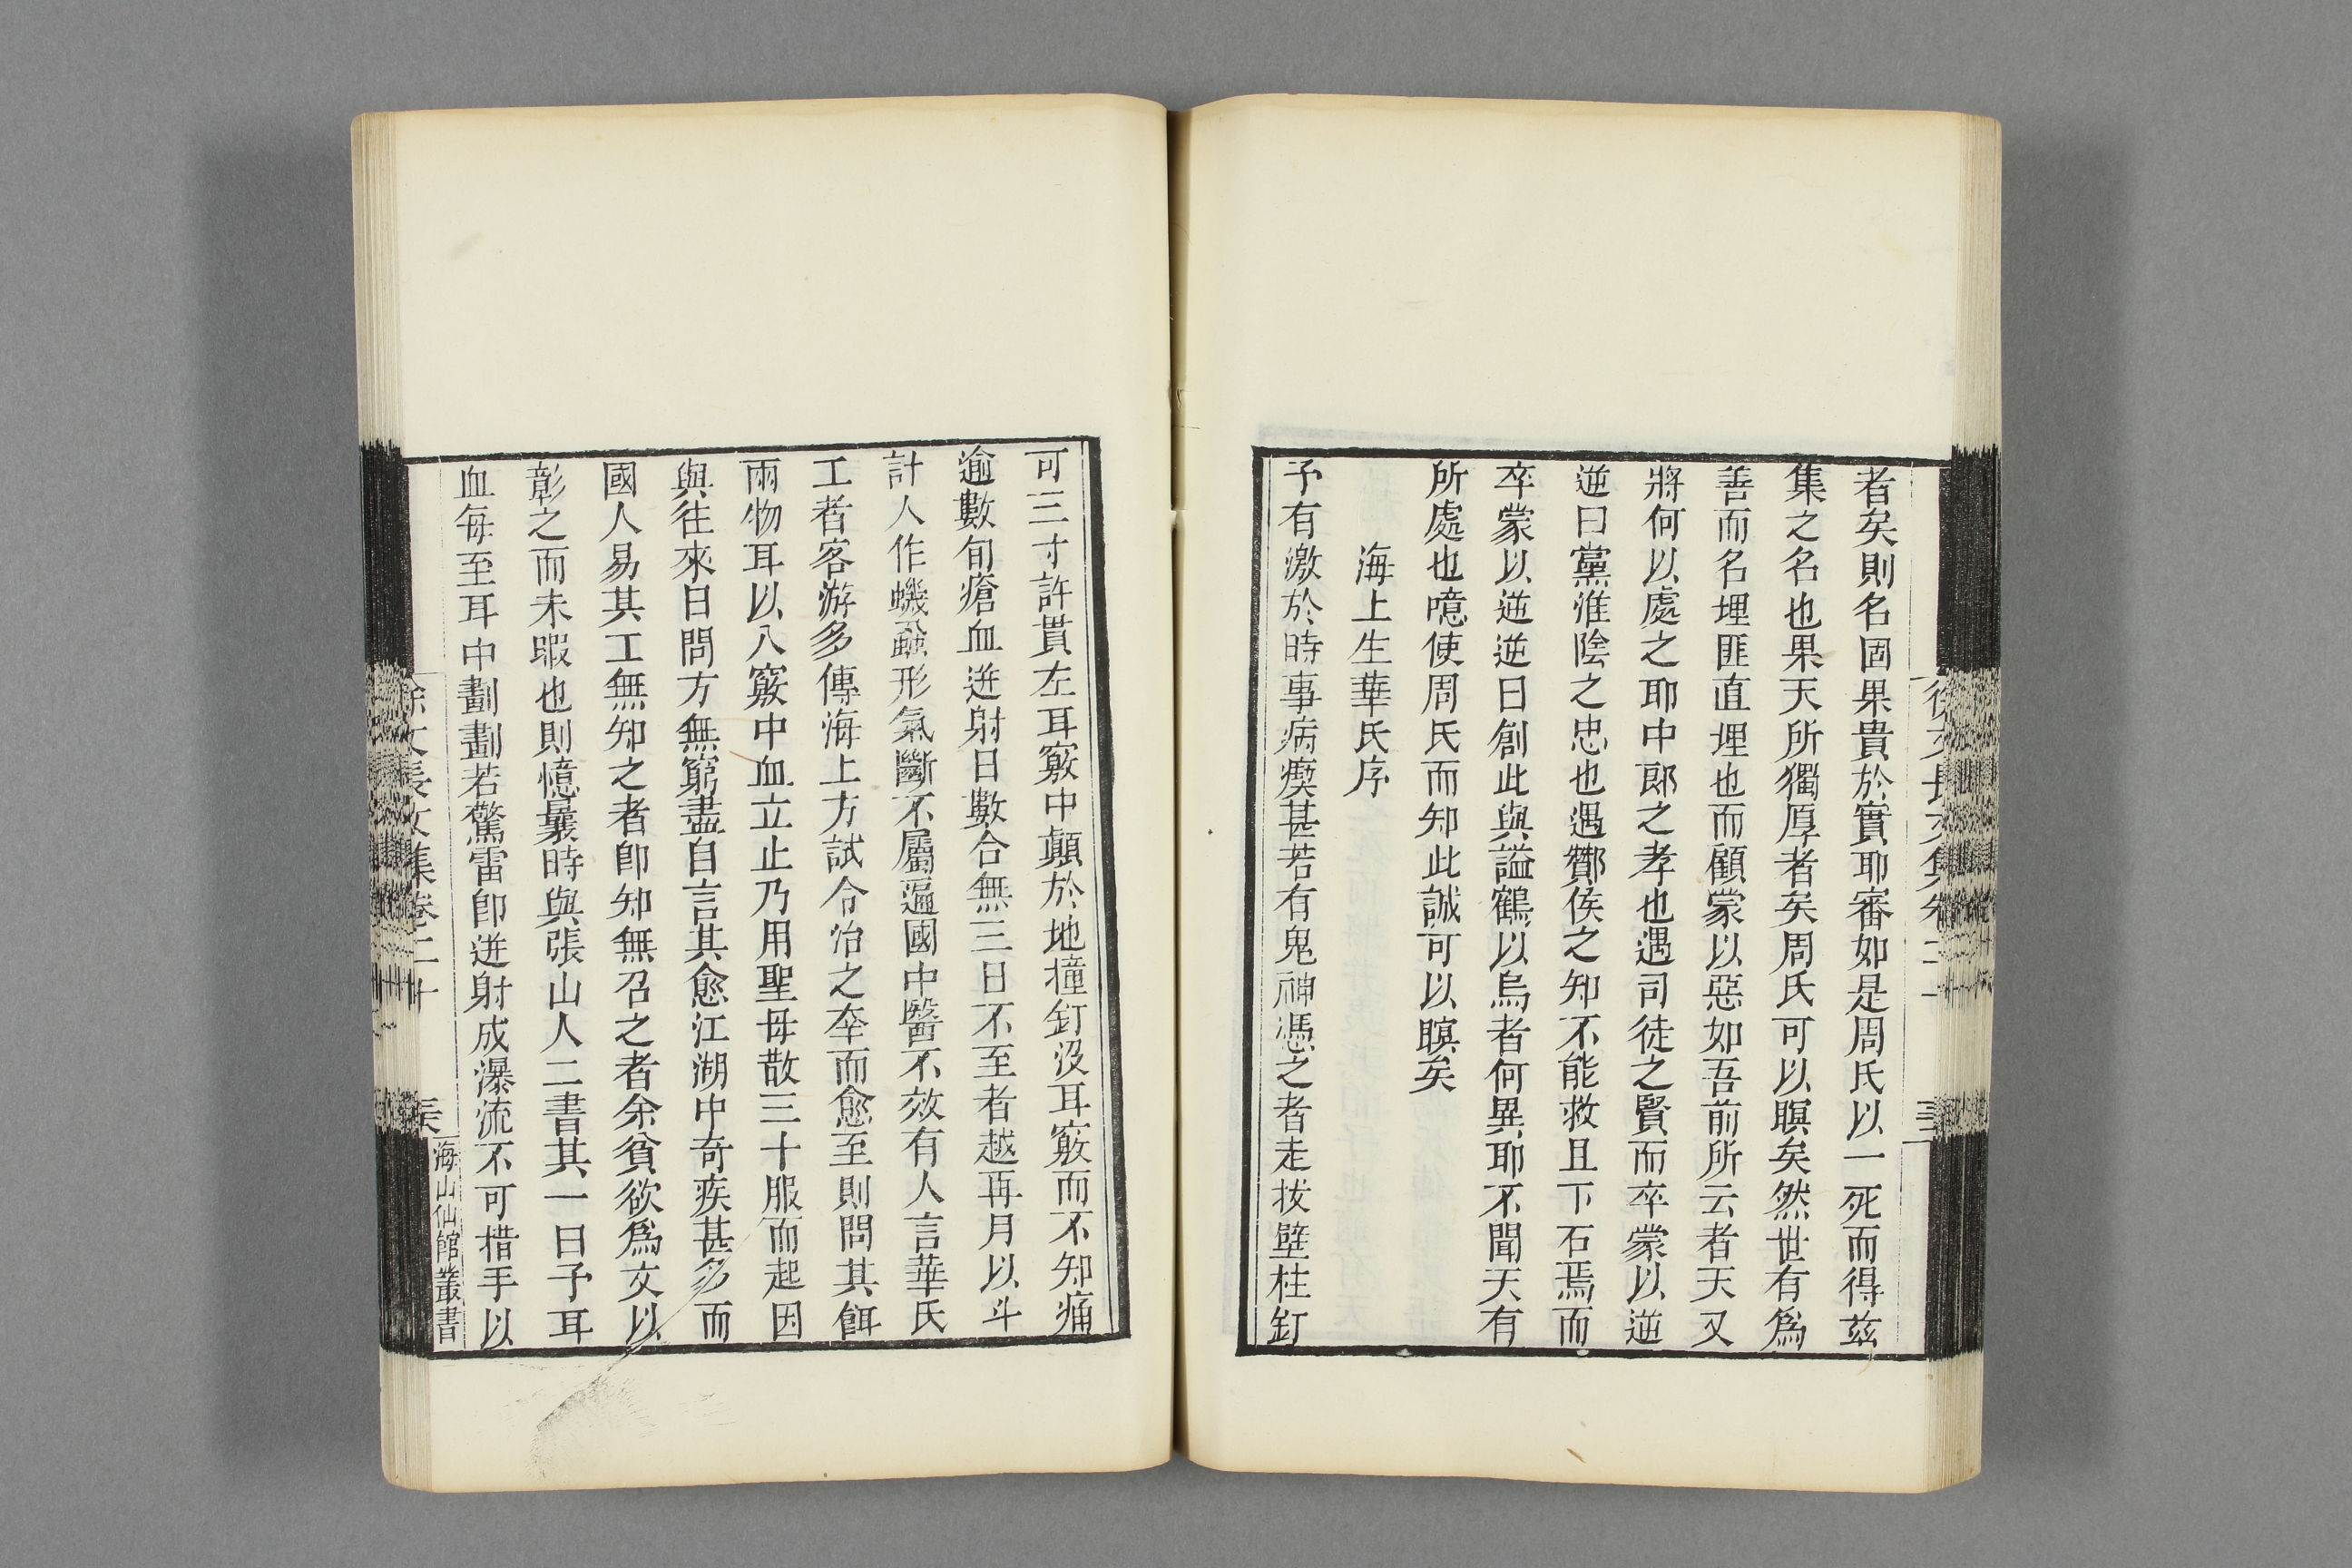 者矣則名固果貴於實耶審如是周氏以一死而得茲
集之名也果天所獨厚者矣周氏可以瞑矣然世有爲
善而名埋匪直埋也而顧蒙以惡如吾前所云者天又
將何以處之耶中郎之孝也遇司徒之賢而卒蒙以逆
逆曰黨淮陰之忠也遇酇侯之知不能救且下石焉而
卒蒙以逆逆曰創此與謚鶴以烏者何異耶不聞天有
所處也噫使周氏而知此誠可以瞑矣
海上生華氏序
予有激於時事病瘈甚若有鬼神憑之者走拔壁柱釘
可三寸許貫左耳竅中顛於地撞釘没耳竅而不知痛
逾數旬瘡血迸射日數合無三日不至者越再月以斗
計人作蟣蝨形氣斷不屬遍國中醫不效有人言華氏
工者客游多傳海上方試令治之卒而愈至則問其餌
兩物耳以入竅中血立止乃用聖母散三十服而起因
與往來日問方無窮盡自言其愈江湖中奇疾甚多而
國人易其工無知之者卽知無召之者余貧欲爲文以
彰之而未暇也則憶曩時與張山人二書其一曰予耳
血每至耳中劃劃若驚雷卽迸射成瀑流不可措手以
徐文長文集卷二十
海山仙館叢書